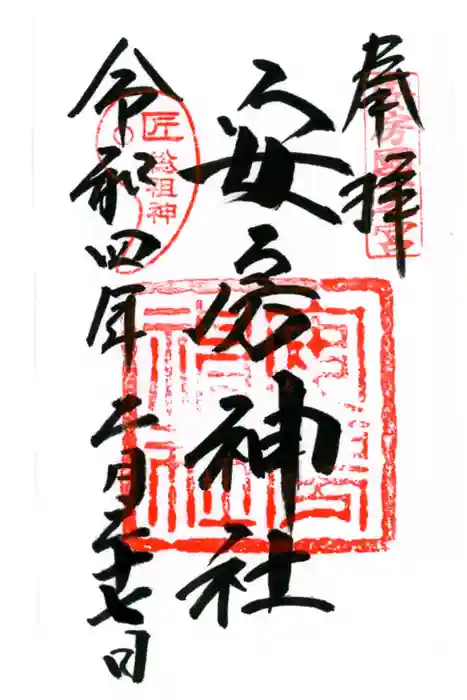 奉拝
安房国一宮
安房神社
安房神社
匠
総祖神
令和四年二月二十七日